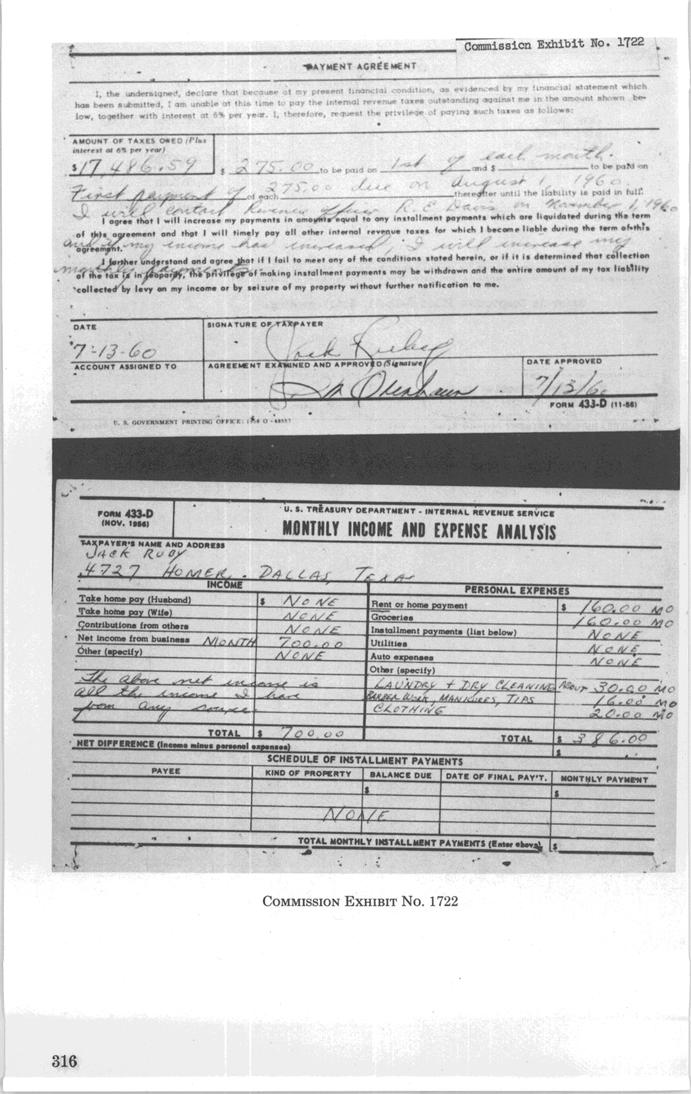 Commission Exhibit No. 1722
PAYMENT AGREEMENT
I, the undersigned, declare that because of my present financial condition, as evidenced by my financial statement which
has been submitted, I am unable at this time to pay the internal revenue taxes outstanding against me in the amount shown be-
low, together with interest at 6% per year. I, therefore, request the privilege of paying such taxes as follows:
AMOUNT OF TAXES OWED (Plus
interest at 6% per year)
$17,486.59 $ 275.00 to be paid on 1st of each month. and $ to be paid on
First payment of of each 275.00 due on August 1, 1960 thereafter until the liability is paid in full.
I will contact Revenue Officer R. E. Davis on November 1, 1960
I agree that I will increase my payments in amounts equal to any installment payments which are liquidated during the term
of this agreement and that I will timely pay all other internal revenue taxes for which I become liable during the term of this
agreement.
and if my income has increased, I will increase my
I further understand and agree that if I fail to meet any of the conditions stated herein, or if it is determined that collection
monthly payments
of the tax is in jeopardy, the privilege of making installment payments may be withdrawn and the entire amount of my tax liability
collected by levy on my income or by seizure of my property without further notification to me.
DATE SIGNATURE OF TAXPAYER
7-13-60 Jack Ruby
ACCOUNT ASSIGNED TO AGREEMENT EXAMINED AND APPROVED (Signature) DATE APPROVED
7/13/60
FORM 433-D (11-56)
U. S. GOVERNMENT PRINTING OFFICE:
FORM 433-D
(NOV. 1956)
U. S. TREASURY DEPARTMENT - INTERNAL REVENUE SERVICE
MONTHLY INCOME AND EXPENSE ANALYSIS
TAXPAYER'S NAME AND ADDRESS
JACK RUBY
4727 HOMER. DALLAS, TEXAS
INCOME PERSONAL EXPENSES
Take home pay (Husband) $ NONE Rent or home payment $ 160.00 MO
Take home pay (Wife) NONE Groceries 160.00 MO
Contributions from others NONE Installment payments (list below) NONE
Net income from business MONTH 700.00 Utilities NONE
Other (specify) NONE Auto expenses NONE
Other (specify)
The above net income is LAUNDRY + DRY CLEANING ABOUT 30.00 MO
all the income I have BARBER WORK, MANICURES, TIPS 16.00 MO
from any source CLOTHING 20.00 MO
TOTAL $ 700.00 TOTAL $ 386.00
NET DIFFERENCE (Income minus personal expenses) $
SCHEDULE OF INSTALLMENT PAYMENTS
PAYEE KIND OF PROPERTY BALANCE DUE DATE OF FINAL PAY'T. MONTHLY PAYMENT
$ $
NONE
TOTAL MONTHLY INSTALLMENT PAYMENTS (Enter above) $
COMMISSION EXHIBIT NO. 1722
316